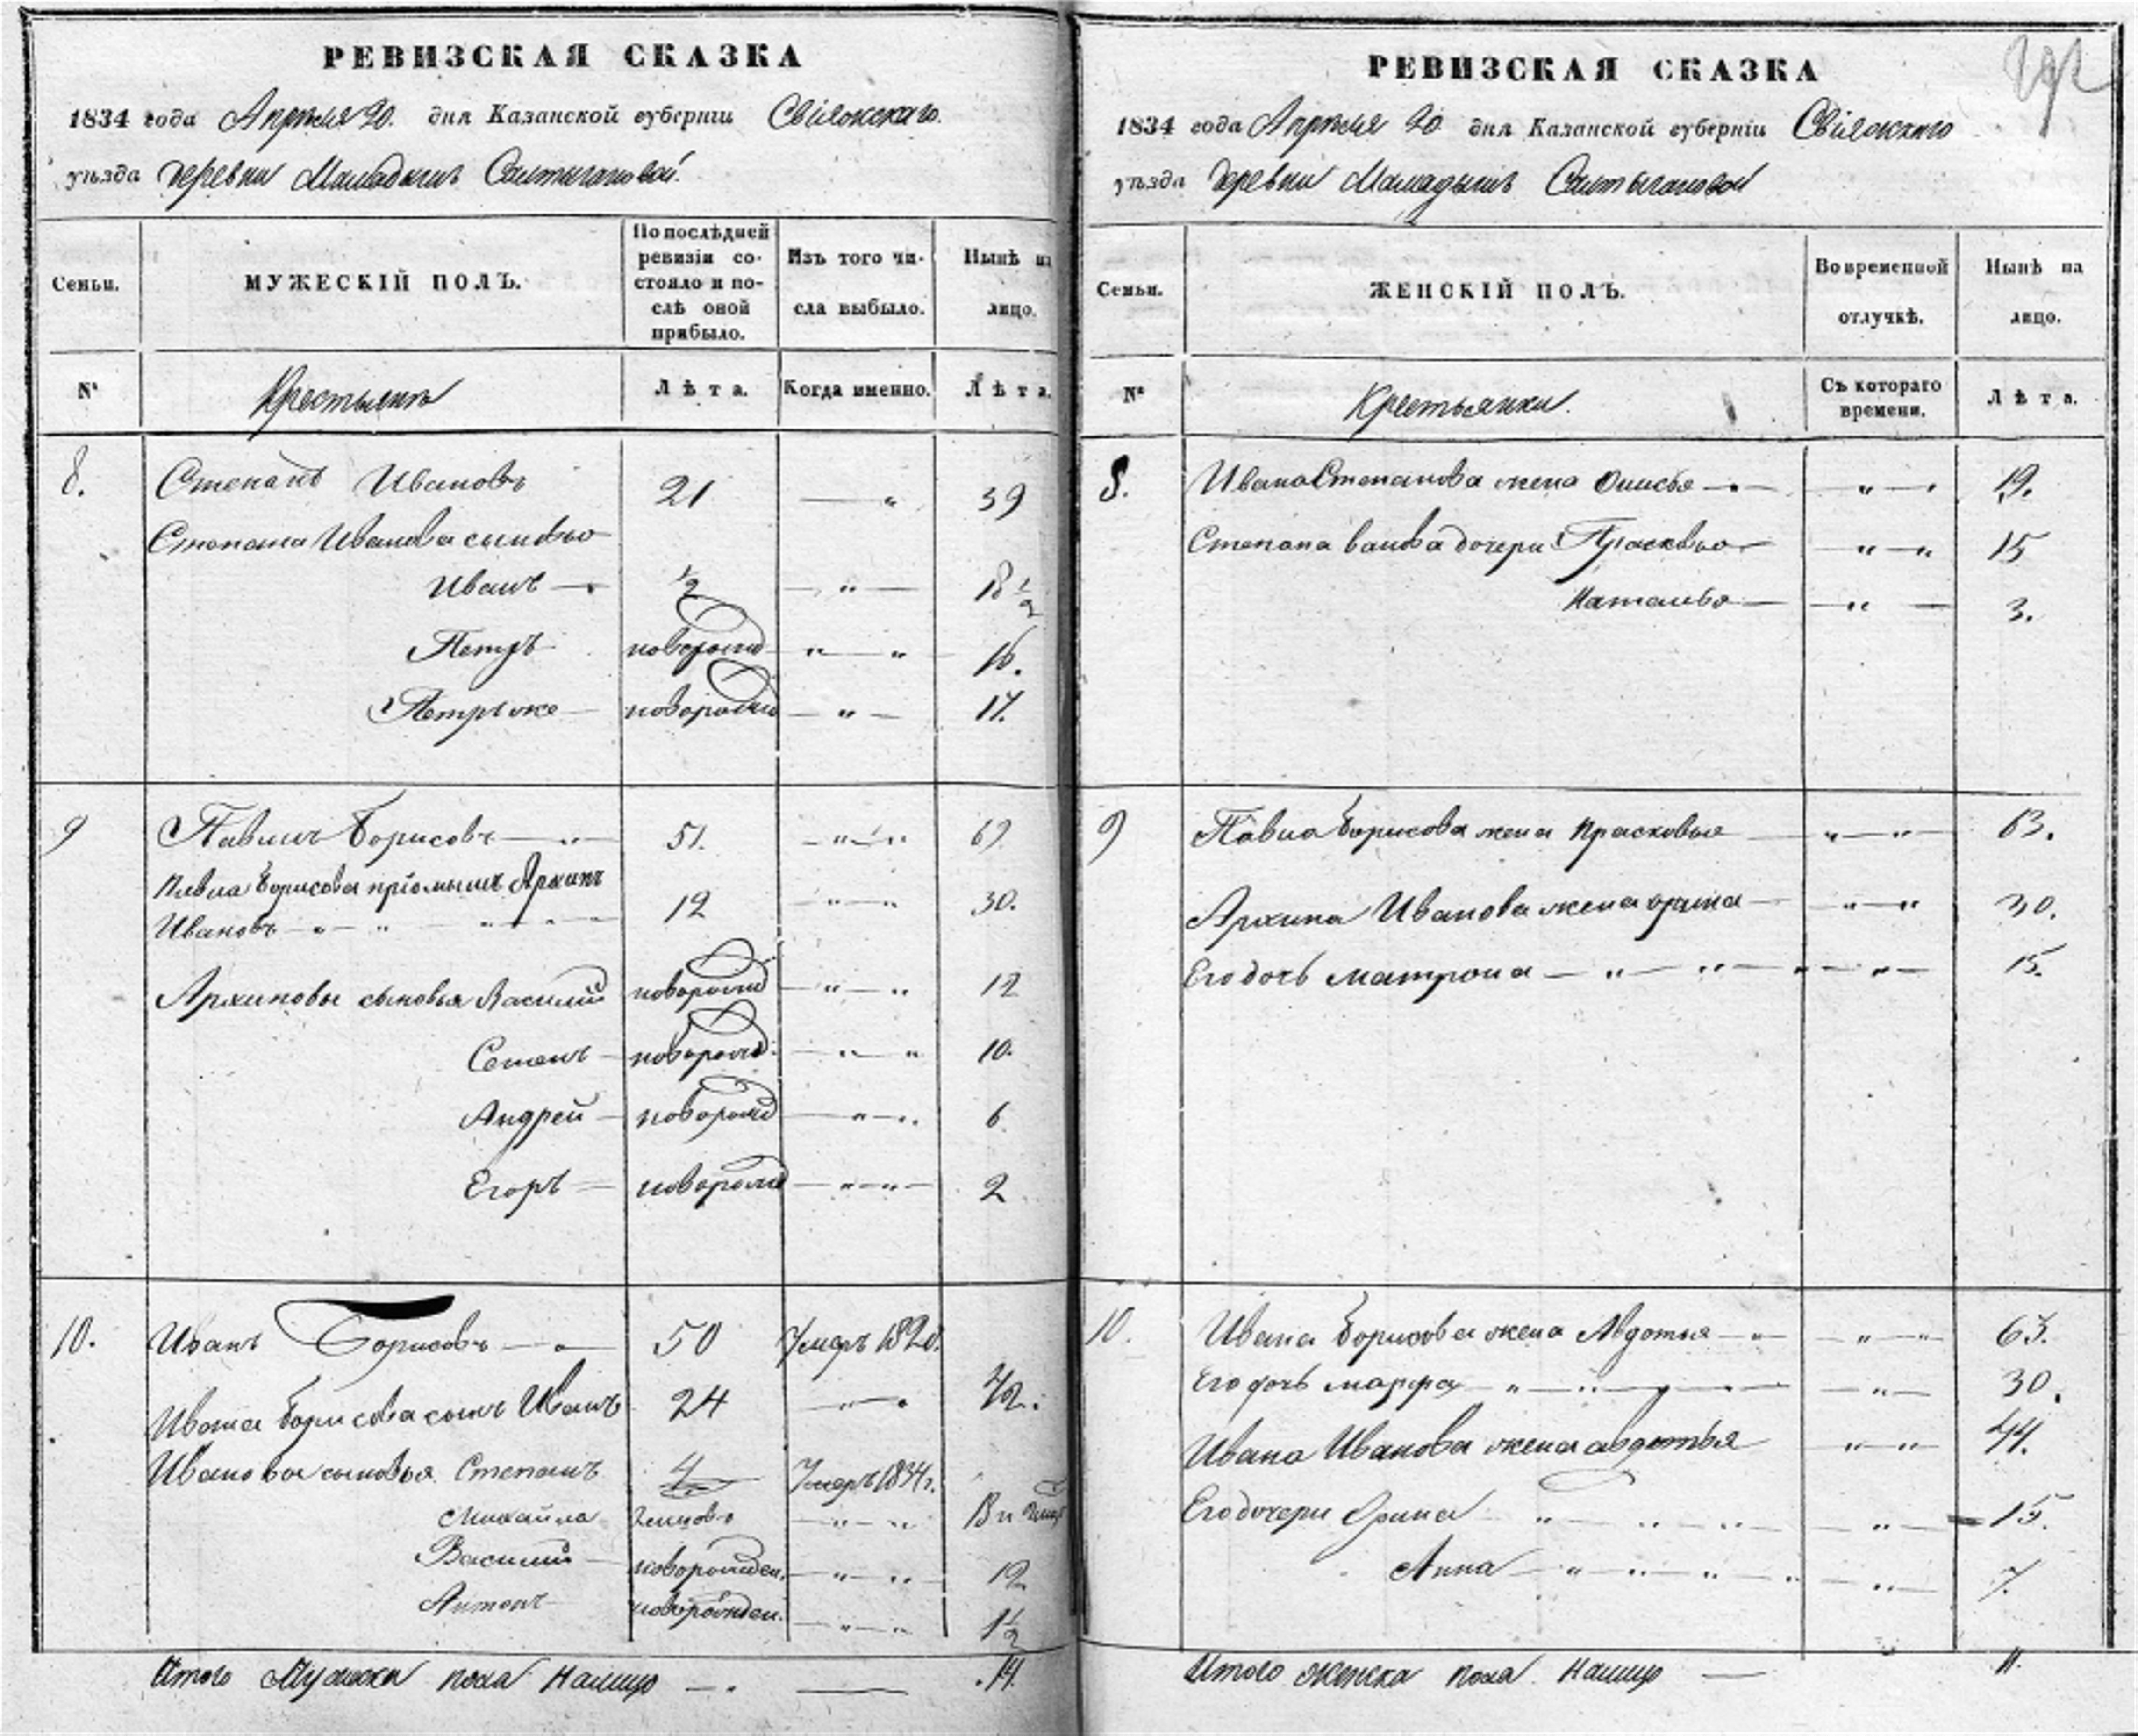 РЕВИЗСКАЯ СКАЗКА
1834 года Апреля 20. дня Казанской губерніи Свіяжскаго.
уѣзда деревни Мамадышъ Салтыгановой.
Семьи.
МУЖЕСКІЙ ПОЛЪ.
По послѣдней ревизіи состояло и послѣ оной прибыло.
Изъ того числа выбыло.
Нынѣ на лицо.
№
Крестьянъ
Лѣта.
Когда именно.
Лѣта.
8. Степанъ Ивановъ 21 — „ 39
Степана Иванова сыновья
Иванъ — ½ — „ — 18 ½
Петръ новорожд „ — „ 16.
2 Петръ же — новорожд — „ — 14.
9 Павилъ Борисовъ — „ 51. — „ — „ 69
Павла Борисова пріомышъ Архипъ
Ивановъ — „ — „ 12 — „ — „ 30.
Архиповы сыновья Василій новорожд — „ — „ 12
Семенъ — новорожд: — „ — „ 10.
Андрей — новорожд — „ — „ 6
Егоръ — новорожд — „ — „ 2
10. Иванъ Борисовъ — „ 50 Умеръ 1820.
Ивана Борисова сынъ Иванъ 24 — „ 42.
Ивановы сыновья Степанъ 4 Умеръ 1834 г.
Михайла — „ — „
Василий — новорожден. — „ — „ 12
Антонъ новорожден. — „ — „ 1 ½
Итого Мужеска пола налицо — . — .14.
РЕВИЗСКАЯ СКАЗКА
1834 года Апреля 20 дня Казанской губерніи Свіяжскаго
уѣзда деревни Мамадышъ Салтыгановой
Семьи.
ЖЕНСКІЙ ПОЛЪ.
Во временной отлучкѣ.
Нынѣ на лицо.
№
Крестьянки.
Съ котораго времени.
Лѣта.
8. Ивана Степанова жена Онисья — „ — „ 19.
Степана ванова дочери Прасковья — „ — „ 15
Наталья — „ — 3.
9 Павла Борисова жена Прасковья — „ — „ 63.
Архипа Иванова жена орина — „ — „ 30.
Его дочь матрона — „ — „ — „ — „ — 15.
10. Ивана Борисова жена Авдотья — „ — „ — „ 63.
Его дочь марфа — „ — „ — „ — 30.
Ивана Иванова жена авдотья „ — „ 44.
Его дочери Орина „ „ „ „ — „ — 15.
Анна — „ „ „ „ — „ — 7.
Итого женска пола. налицо — 11.